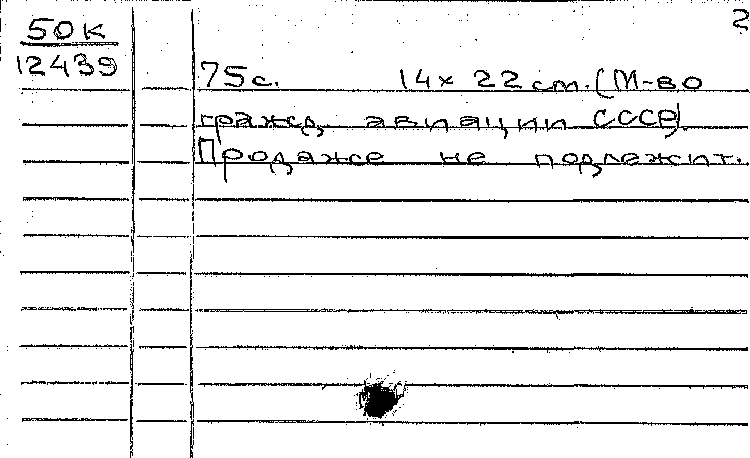 2
50к
12439
75с. 14х22 см. (М-во
гражд. авиации СССР).
Продаже не подлежит.